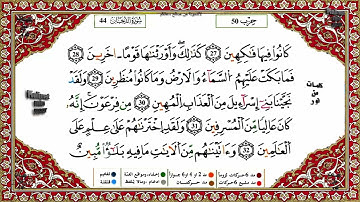 حِزْب 50 سُورَةُ الدُّخَان 44
كَانُوا فِيهَا فَٰكِهِينَ (27) كَذَٰلِكَ وَأَوْرَثْنَٰهَا قَوْمًا ءَاخَرِينَ (28)
فَمَا بَكَتْ عَلَيْهِمُ السَّمَآءُ وَالَارْضُ وَمَا كَانُوا مُنظَرِينَ (29) وَلَقَدْ
نَجَّيْنَا بَنِےٓ إِسْرَآءِيلَ مِنَ الْعَذَابِ الْمُهِينِ (30) مِن فِرْعَوْنَ إِنَّهُۥ
كَانَ عَالِيًا مِّنَ الْمُسْرِفِينَ (31) وَلَقَدِ اخْتَرْنَٰهُمْ عَلَىٰ عِلْمٍ عَلَى
الْعَٰلَمِينَ (32) وَءَاتَيْنَٰهُم مِّنَ الَايَٰتِ مَا فِيهِ بَلَٰٓؤٌا مُّبِينٌ